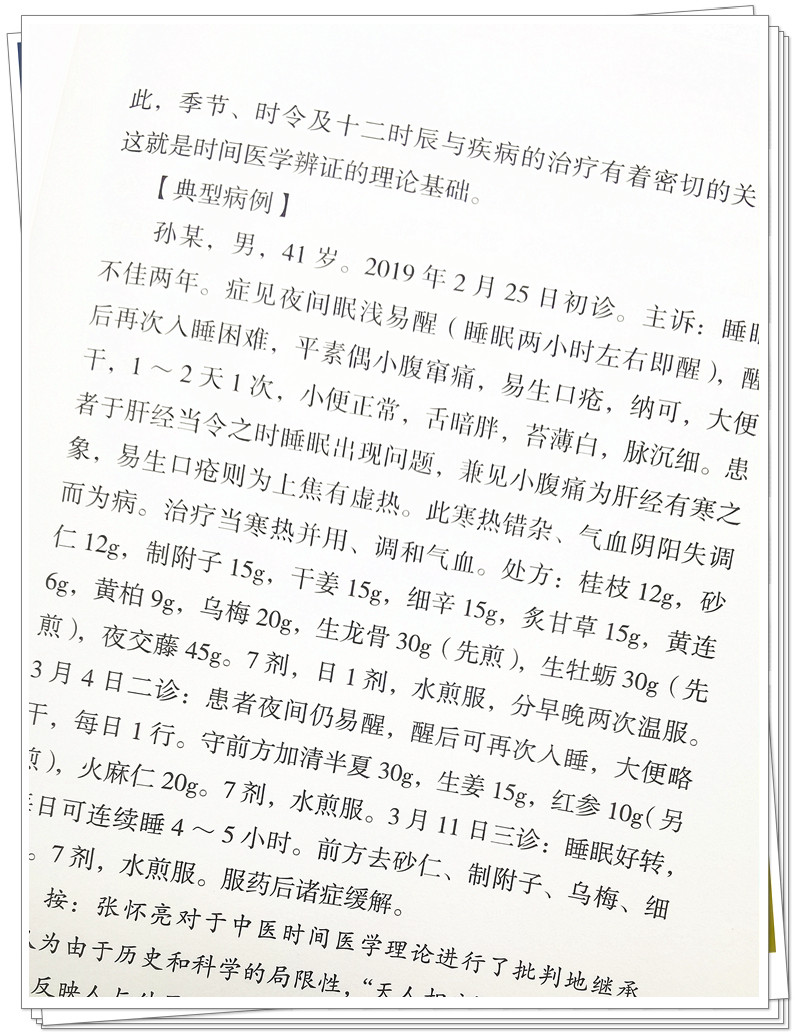 此，季节、时令及十二时辰与疾病的治疗有着密切的关
这就是时间医学辨证的理论基础。
【典型病例】
孙某，男，41岁。2019年2月25日初诊。主诉：睡眠
不佳两年。症见夜间眠浅易醒（睡眠两小时左右即醒），醒
后再次入睡困难，平素偶小腹窜痛，易生口疮，纳可，大便
干，1～2天1次，小便正常，舌暗胖，苔薄白，脉沉细。患
者于肝经当令之时睡眠出现问题，兼见小腹痛为肝经有寒之
象，易生口疮则为上焦有虚热。此寒热错杂、气血阴阳失调
而为病。治疗当寒热并用、调和气血。处方：桂枝12g，砂
仁12g，制附子15g，干姜15g，细辛15g，炙甘草15g，黄连
6g，黄柏9g，乌梅20g，生龙骨30g（先煎），生牡蛎30g（先
煎），夜交藤45g。7剂，日1剂，水煎服，分早晚两次温服。
3月4日二诊：患者夜间仍易醒，醒后可再次入睡，大便略
干，每日1行。守前方加清半夏30g，生姜15g，红参10g（另
煎），火麻仁20g。7剂，水煎服。3月11日三诊：睡眠好转，
每日可连续睡4～5小时。前方去砂仁、制附子、乌梅、细
。7剂，水煎服。服药后诸症缓解。
按：张怀亮对于中医时间医学理论进行了批判地继承
人为由于历史和科学的局限性，“天人相
反映人与